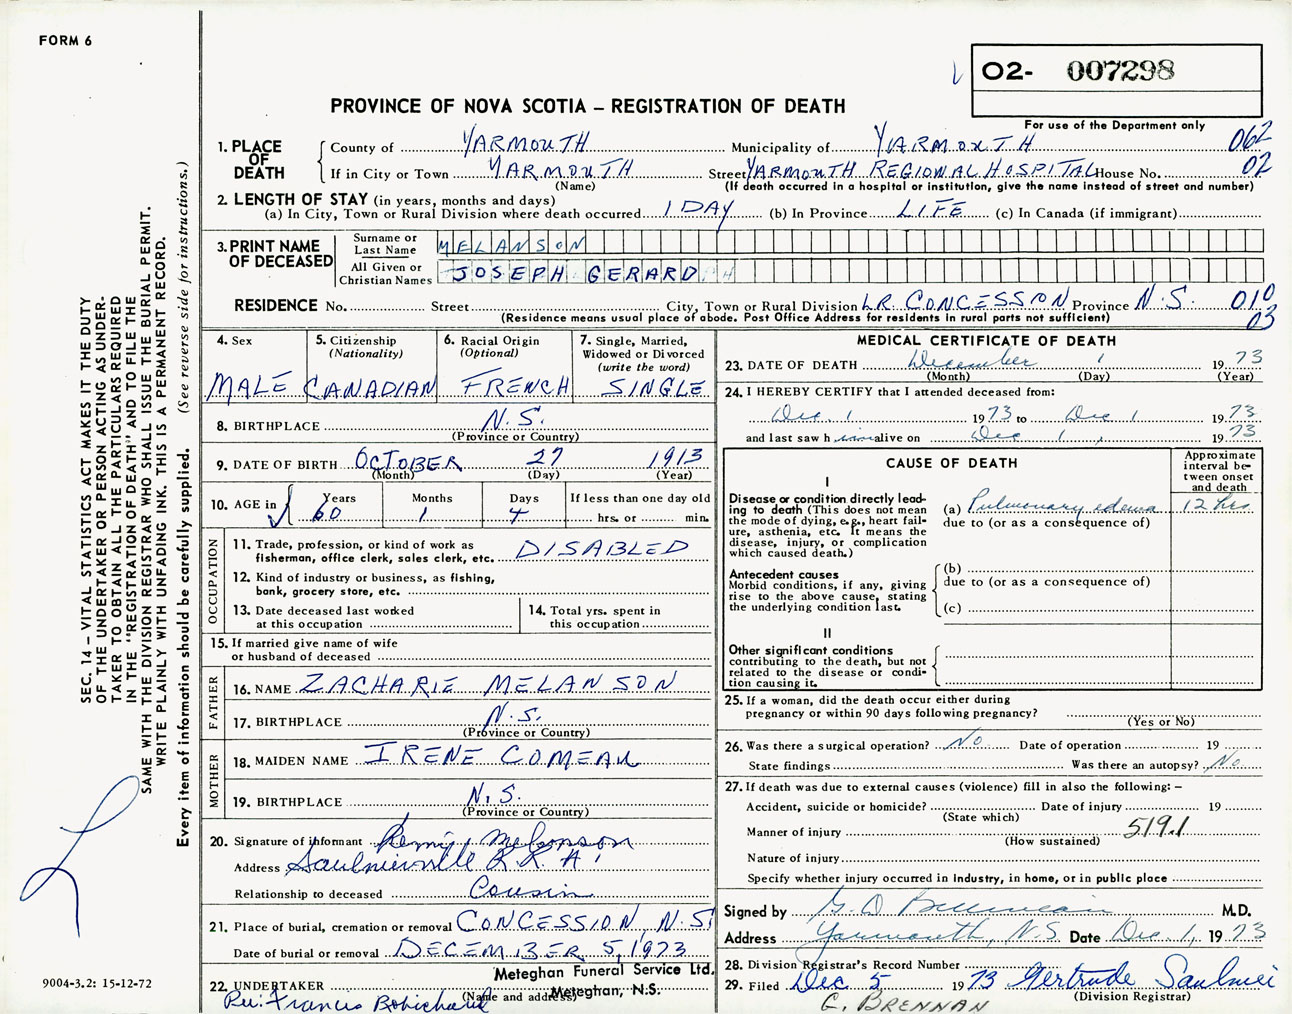 FORM 6
O2- 007298
PROVINCE OF NOVA SCOTIA – REGISTRATION OF DEATH
For use of the Department only
062
02
1. PLACE OF DEATH
County of YARMOUTH Municipality of YARMOUTH
If in City or Town YARMOUTH Street YARMOUTH REGIONAL HOSPITAL House No.
(Name) (If death occurred in a hospital or institution, give the name instead of street and number)
2. LENGTH OF STAY (in years, months and days)
(a) In City, Town or Rural Division where death occurred 1 DAY (b) In Province LIFE (c) In Canada (if immigrant)
3. PRINT NAME OF DECEASED
Surname or Last Name MELANSON
All Given or Christian Names JOSEPH GERARD
RESIDENCE No. Street City, Town or Rural Division LR. CONCESSON Province N.S. 010
03
(Residence means usual place of abode. Post Office Address for residents in rural parts not sufficient)
4. Sex
MALE
5. Citizenship
(Nationality)
CANADIAN
6. Racial Origin
(Optional)
FRENCH
7. Single, Married,
Widowed or Divorced
(write the word)
SINGLE
8. BIRTHPLACE N.S.
(Province or Country)
9. DATE OF BIRTH OCTOBER 27 1913
(Month) (Day) (Year)
10. AGE in Years 60 Months 1 Days 4 If less than one day old
hrs. or min.
OCCUPATION
11. Trade, profession, or kind of work as
fisherman, office clerk, sales clerk, etc. DISABLED
12. Kind of industry or business, as fishing,
bank, grocery store, etc.
13. Date deceased last worked
at this occupation
14. Total yrs. spent in
this occupation
15. If married give name of wife
or husband of deceased
FATHER
16. NAME ZACHARIE MELANSON
17. BIRTHPLACE N.S.
(Province or Country)
MOTHER
18. MAIDEN NAME IRENE COMEAU
19. BIRTHPLACE N.S.
(Province or Country)
20. Signature of informant Remi Melanson
Address Saulnierville R.R. #1
Relationship to deceased Cousin
21. Place of burial, cremation or removal CONCESSION, N.S.
Date of burial or removal DECEMBER 5, 1973
22. UNDERTAKER Meteghan Funeral Service Ltd.
(Name and address) Meteghan, N.S.
Per: Francis Robichaud
MEDICAL CERTIFICATE OF DEATH
23. DATE OF DEATH December 1 1973
(Month) (Day) (Year)
24. I HEREBY CERTIFY that I attended deceased from:
Dec. 1 1973 to Dec 1 1973
and last saw h im alive on Dec 1, 1973
CAUSE OF DEATH
Approximate
interval be-
tween onset
and death
I
Disease or condition directly lead-
ing to death (This does not mean
the mode of dying, e.g., heart fail-
ure, asthenia, etc. It means the
disease, injury, or complication
which caused death.)
(a) Pulmonary edema 12 hrs
due to (or as a consequence of)
Antecedent causes
Morbid conditions, if any, giving
rise to the above cause, stating
the underlying condition last.
(b)
due to (or as a consequence of)
(c)
II
Other significant conditions
contributing to the death, but not
related to the disease or condi-
tion causing it.
25. If a woman, did the death occur either during
pregnancy or within 90 days following pregnancy?
(Yes or No)
26. Was there a surgical operation? No Date of operation 19
State findings Was there an autopsy? No
27. If death was due to external causes (violence) fill in also the following: –
Accident, suicide or homicide? Date of injury 19
(State which)
Manner of injury 519.1
(How sustained)
Nature of injury
Specify whether injury occurred in industry, in home, or in public place
Signed by G.D. M.D.
Address Yarmouth, N.S. Date Dec 1, 1973
28. Division Registrar's Record Number
29. Filed Dec 5 1973 Gertrude
(Division Registrar)
G. BRENNAN
SEC. 14 – VITAL STATISTICS ACT MAKES IT THE DUTY
OF THE UNDERTAKER OR PERSON ACTING AS UNDER-
TAKER TO OBTAIN ALL THE PARTICULARS REQUIRED
IN THE "REGISTRATION OF DEATH" AND TO FILE THE
SAME WITH THE DIVISION REGISTRAR WHO SHALL ISSUE THE BURIAL PERMIT.
WRITE PLAINLY WITH UNFADING INK. THIS IS A PERMANENT RECORD.
Every item of information should be carefully supplied. (See reverse side for instructions.)
9004-3.2: 15-12-72